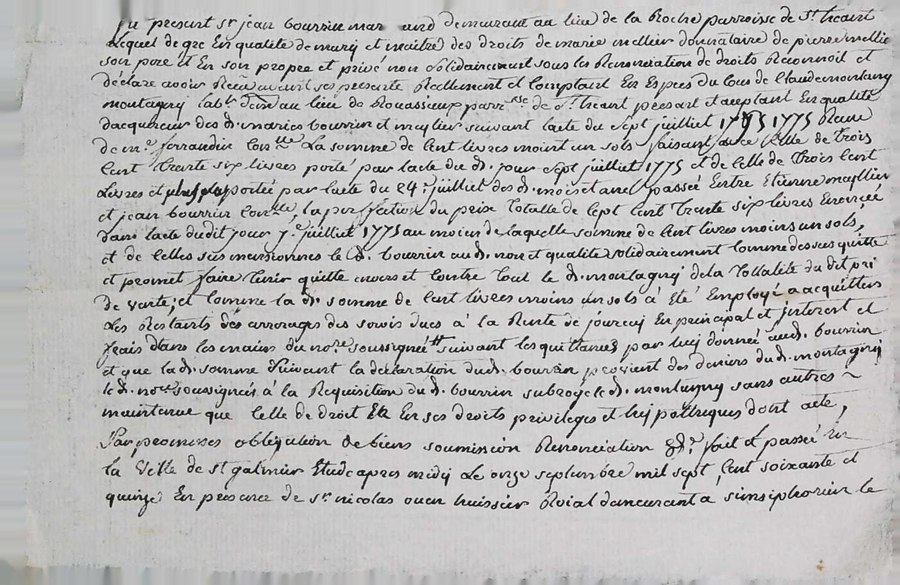 fu present sr jean bourrin mar and demeurant au lieu de la Roche parroisse de Stheant
Lequel de gre En qualité de mary et maitre des droits de marie mellier donnataire de pierre mellie
son pere et En son propre et privé nom solidairement sous les Renonciation de droits Reconnoit et
déclare avoir Receu avant ses presente Reellement et Comptant En Espes du Cours de Claude montagny
montagny labr demt au lieu de Rouassieux parrsse de St heant present et acceptant En qualité
dacquereur des d. maries bourrin et meylier suivant lacte du sept juilliet 1775 1775 Receu
de me ferrandin Conlle La somme de Cent livres moins un sols faisant avec Celle de trois
Cent trante six livres porté par lacte du d. jour sept juilliet 1775 et de Celle de trois Cent
Livres et portée par lacte du 24e juilliet des d. mois et an passée Entre Etienne meyllier
et jean bourrin Conlle, la perfection du prix totalle de sept Cent trante six livres Enoncée
dans lacte dudit jour 7e juilliet 1775 au moien de laquelle somme de Cent livres moins un sols,
et de Celles sus mensionnes le d. bourrin aud. nom et qualité solidairement Comme dessus quitte
et promet faire tenir quitte envers et Contre tout le d. montagny de la tottalité du dit pri
de vante; et Comme la d. somme de Cent livres moins un sols à Eté Employé a acquitter
Les Restants des arrerages des servis dues à la Rente de joursey En principal et jnterest et
frais dans les mains du nore soussignée suivant les quittances par luy donnée aud. bourrin
et que la d. somme suivant la declaration dud. bourrin provient des deniers du d. montagny
le d. nore soussignés à la Requisition du d. bourrin subroge le d. montagny sans autres ~
maintenue que Celle de droit En ses droits privileges et hypotheques dont acte,
Par promesses obligation de biens soumission Renonciation &ca. fait et passée En
la Ville de st galmier Etude apres midy Le onze septembre mil sept Cent soixante et
quinze En presence de sr nicolas ouen huissier Roial demeurant a simsiphorien le